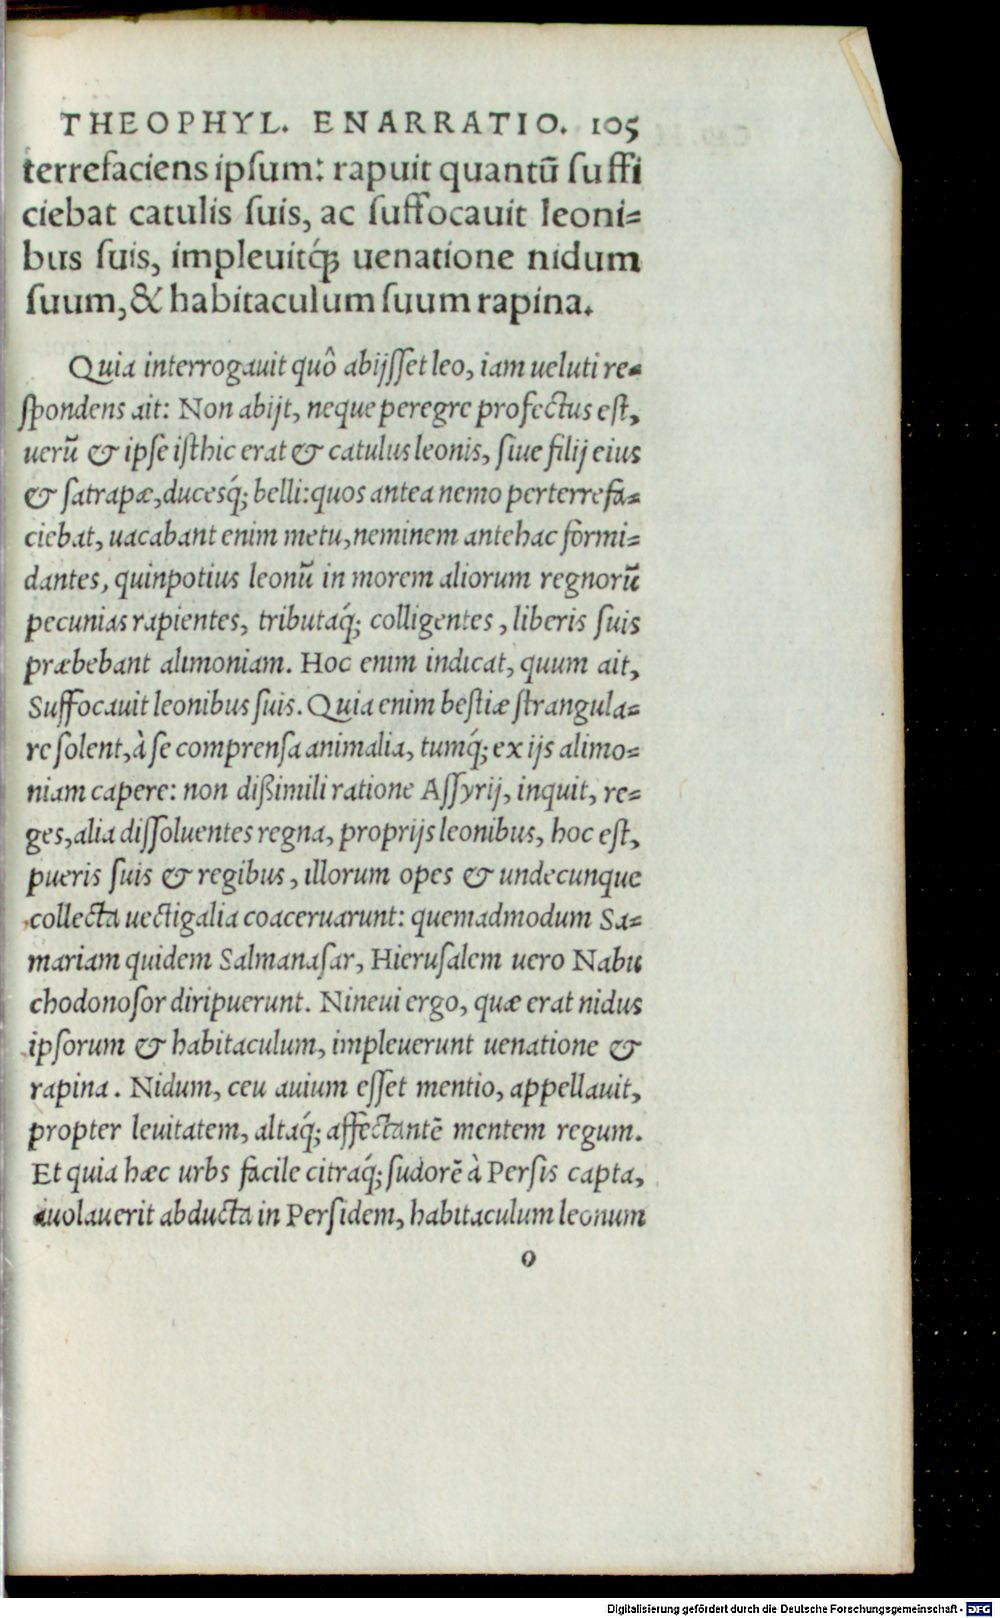 THEOPHYL. ENARRATIO. 105
terrefaciens ipſum: rapuit quantũ ſuffi
ciebat catulis ſuis, ac ſuffocauit leoni-
bus ſuis, impleuitq́; uenatione nidum
ſuum, & habitaculum ſuum rapina.
Quia interrogauit quô abijſſet leo, iam ueluti re-
ſpondens ait: Non abijt, neque peregre profectus eſt,
uerũ & ipſe iſthic erat & catulus leonis, ſiue filij eius
& ſatrapæ, ducesq́; belli: quos antea nemo perterrefa-
ciebat, uacabant enim metu, neminem antehac formi-
dantes, quinpotius leonũ in morem aliorum regnorũ
pecunias rapientes, tributaq́; colligentes, liberis ſuis
præbebant alimoniam. Hoc enim indicat, quum ait,
Suffocauit leonibus ſuis. Quia enim beſtiæ ſtrangula-
re ſolent, à ſe comprenſa animalia, tumq́; ex ijs alimo-
niam capere: non dißimili ratione Aſſyrij, inquit, re-
ges, alia diſſoluentes regna, proprijs leonibus, hoc eſt,
pueris ſuis & regibus, illorum opes & undecunque
collecta uectigalia coaceruarunt: quemadmodum Sa-
mariam quidem Salmanaſar, Hieruſalem uero Nabu
chodonoſor diripuerunt. Nineui ergo, quæ erat nidus
ipſorum & habitaculum, impleuerunt uenatione &
rapina. Nidum, ceu auium eſſet mentio, appellauit,
propter leuitatem, altaq́; affectantẽ mentem regum.
Et quia hæc urbs facile citraq́; ſudorẽ à Perſis capta,
auolauerit abducta in Perſidem, habitaculum leonum
o
Digitalisierung gefördert durch die Deutsche Forschungsgemeinschaft - DFG